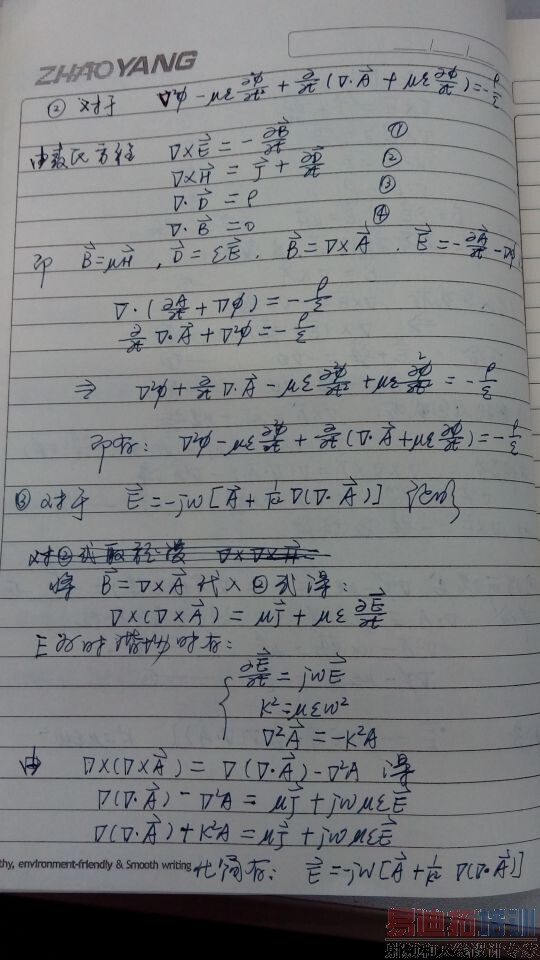 ZHAOYANG
② 对于 ∇²φ - με ∂²φ/∂t² + ∂/∂t (∇·A⃗ + με ∂φ/∂t) = -ρ/ε
由麦氏方程 ∇×E⃗ = -∂B⃗/∂t ①
∇×H⃗ = J⃗ + ∂D⃗/∂t ②
∇·D⃗ = ρ ③
∇·B⃗ = 0 ④
即 B⃗=μH⃗, D⃗=εE⃗, B⃗=∇×A⃗, E⃗=-∂A⃗/∂t-∇φ
∇·(∂A⃗/∂t + ∇φ) = -ρ/ε
∂/∂t ∇·A⃗ + ∇²φ = -ρ/ε
⇒ ∇²φ + ∂/∂t ∇·A⃗ - με ∂²φ/∂t² + με ∂²φ/∂t² = -ρ/ε
即有: ∇²φ - με ∂²φ/∂t² + ∂/∂t (∇·A⃗ + με ∂φ/∂t) = -ρ/ε
③ 对于 E⃗ = -jω[A⃗ + 1/k² ∇(∇·A⃗)] 证明
将 B⃗ = ∇×A⃗ 代入②式得:
∇×(∇×A⃗) = μJ⃗ + με ∂E⃗/∂t
E为时谐场时有:
∂E⃗/∂t = jωE⃗
K² = μεω²
∇²A⃗ = -K²A
由 ∇×(∇×A⃗) = ∇(∇·A⃗) - ∇²A 得
∇(∇·A⃗) - ∇²A = μJ⃗ + jωμεE⃗
∇(∇·A⃗) + K²A = μJ⃗ + jωμεE⃗
thy, environment-friendly & Smooth writing 化简有: E⃗ = -jω[A⃗ + 1/k² ∇(∇·A⃗)]
易迪拓培训
射频和天线设计专家